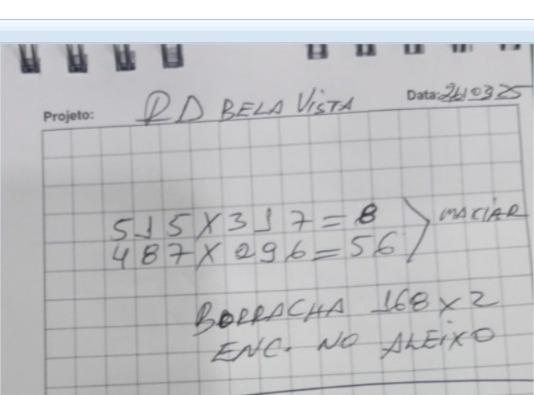 Projeto: RD BELA VISTA Data: 26/03/25
515X317=8
487X296=56 MACIAR
BORRACHA 168x2
ENC. NO ALEIXO